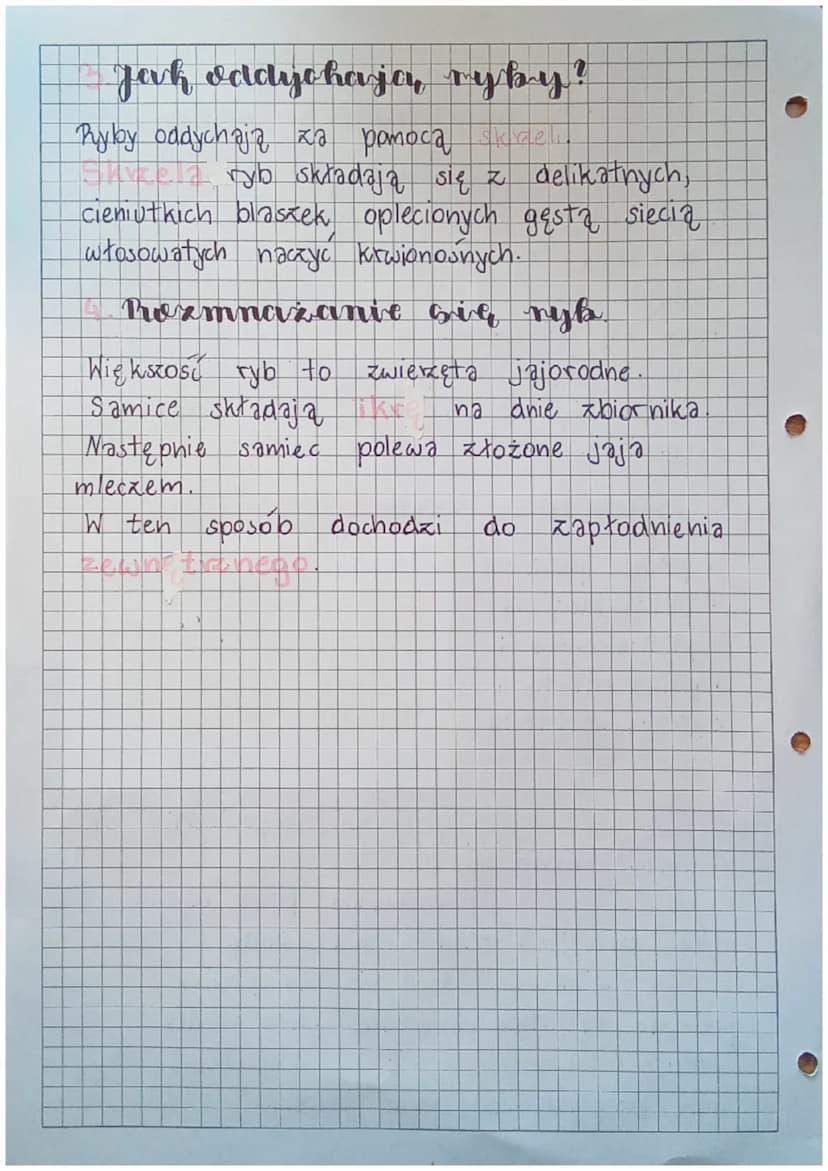 3. Jak oddychają ryby?
Ryby oddychają za pomocą skrzeli.
Skrzela ryb składają się z delikatnych,
cieniutkich blaszek oplecionych gęstą siecią
włosowatych naczyć krwionośnych.
4. Rozmnażanie się ryb.
Większość ryb to zwierzęta jajorodne.
Samice składają ikrę na dnie zbiornika.
Następnie samiec polewa złożone jaja
mleczem.
W ten sposób dochodzi do zapłodnienia
zewnętrznego.